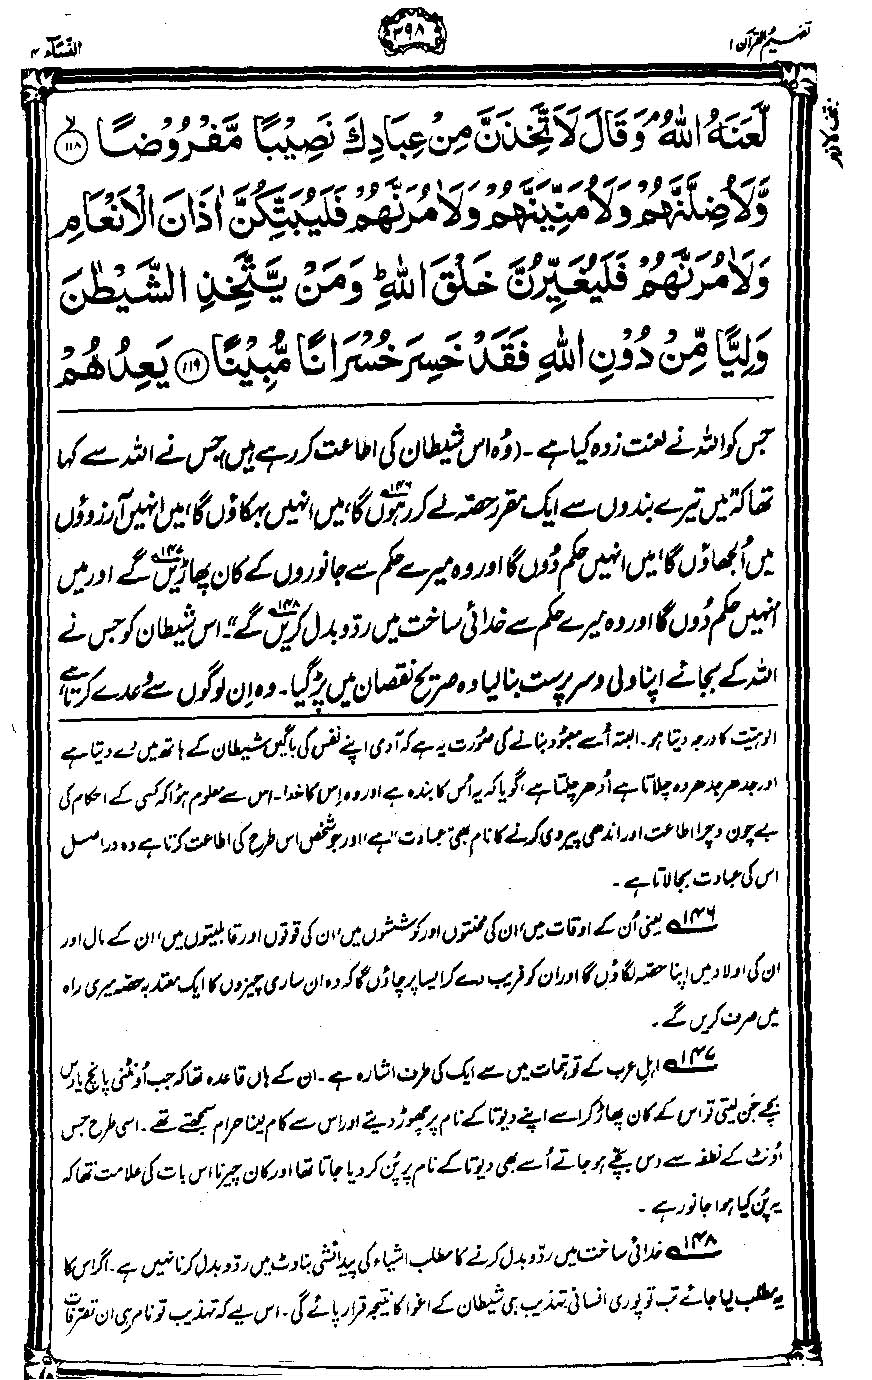 تفہیم القرآن ۱
۳۹۸
النسآء ۴
لَّعَنَهُ اللّٰهُ ۘ وَقَالَ لَاَتَّخِذَنَّ مِنْ عِبَادِكَ نَصِيْبًا مَّفْرُوْضًا ۙ﴿۱۱۸﴾
وَّلَاُضِلَّنَّهُمْ وَلَاُمَنِّيَنَّهُمْ وَلَاٰمُرَنَّهُمْ فَلَيُبَتِّكُنَّ اٰذَانَ الْاَنْعَامِ
وَلَاٰمُرَنَّهُمْ فَلَيُغَيِّرُنَّ خَلْقَ اللّٰهِ ؕ وَمَنْ يَّتَّخِذِ الشَّيْطٰنَ
وَلِيًّا مِّنْ دُوْنِ اللّٰهِ فَقَدْ خَسِرَ خُسْرَانًا مُّبِيْنًا ﴿۱۱۹﴾ يَعِدُهُمْ
جس کو اللہ نے لعنت زدہ کیا ہے۔ (وُہ اس شیطان کی اطاعت کر رہے ہیں) جس نے اللہ سے کہا
تھا کہ ”میں تیرے بندوں سے ایک مقرر حصّہ لے کر رہوں گا،۱۴۶ میں انہیں بہکاؤں گا، میں انہیں آرزوؤں
میں اُلجھاؤں گا، میں انہیں حکم دُوں گا اور وہ میرے حکم سے جانوروں کے کان پھاڑیں۱۴۷ گے اور میں
انہیں حکم دُوں گا اور وہ میرے حکم سے خدائی ساخت میں ردّ و بدل کریں۱۴۸ گے“۔ اس شیطان کو جس نے
اللہ کے بجائے اپنا ولی و سرپرست بنا لیا وہ صریح نقصان میں پڑ گیا۔ وہ اِن لوگوں سے وعدے کرتا ہے
الوہیّت کا درجہ دیتا ہو۔ البتہ اُسے معبُود بنانے کی صُورت یہ ہے کہ آدمی اپنے نفس کی باگیں شیطان کے ہاتھ میں دے دیتا ہے
اور جدھر جدھر وہ چلاتا ہے اُدھر چلتا ہے، گویا کہ یہ اُس کا بندہ ہے اور وہ اِس کا خدا۔ اس سے معلوم ہُوا کہ کسی کے احکام کی
بے چون و چرا اطاعت اور اندھی پیروی کرنے کا نام بھی ”عبادت“ ہے، اور جو شخص اس طرح کی اطاعت کرتا ہے وہ در اصل
اس کی عبادت بجا لاتا ہے۔
۱۴۶ یعنی اُن کے اوقات میں، ان کی محنتوں اور کوششوں میں، ان کی قوتوں اور قابلیتوں میں، ان کے مال اور
ان کی اولاد میں اپنا حصّہ لگاؤں گا اور ان کو فریب دے کر ایسا پرچاؤں گا کہ وہ ان ساری چیزوں کا ایک معتدبہ حصّہ میری راہ
میں صرف کریں گے۔
۱۴۷ اہلِ عرب کے توہّمات میں سے ایک کی طرف اشارہ ہے۔ ان کے ہاں قاعدہ تھا کہ جب اُونٹنی پانچ یا دس
بچے جَن لیتی تو اس کے کان پھاڑ کر اسے اپنے دیوتا کے نام پر چھوڑ دیتے اور اس سے کام لینا حرام سمجھتے تھے۔ اسی طرح جس
اُونٹ کے نطفہ سے دس بچّے ہو جاتے اُسے بھی دیوتا کے نام پر پُن کر دیا جاتا تھا اور کان چیرنا اس بات کی علامت تھا کہ
یہ پُن کیا ہوا جانور ہے۔
۱۴۸ خدائی ساخت میں ردّ و بدل کرنے کا مطلب اشیاء کی پیدائشی بناوٹ میں ردّ و بدل کرنا نہیں ہے۔ اگر اس کا
یہ مطلب لیا جائے تب تو پوری انسانی تہذیب ہی شیطان کے اغوا کا نتیجہ قرار پائے گی۔ اس لیے کہ تہذیب تو نام ہی ان تصرّفات